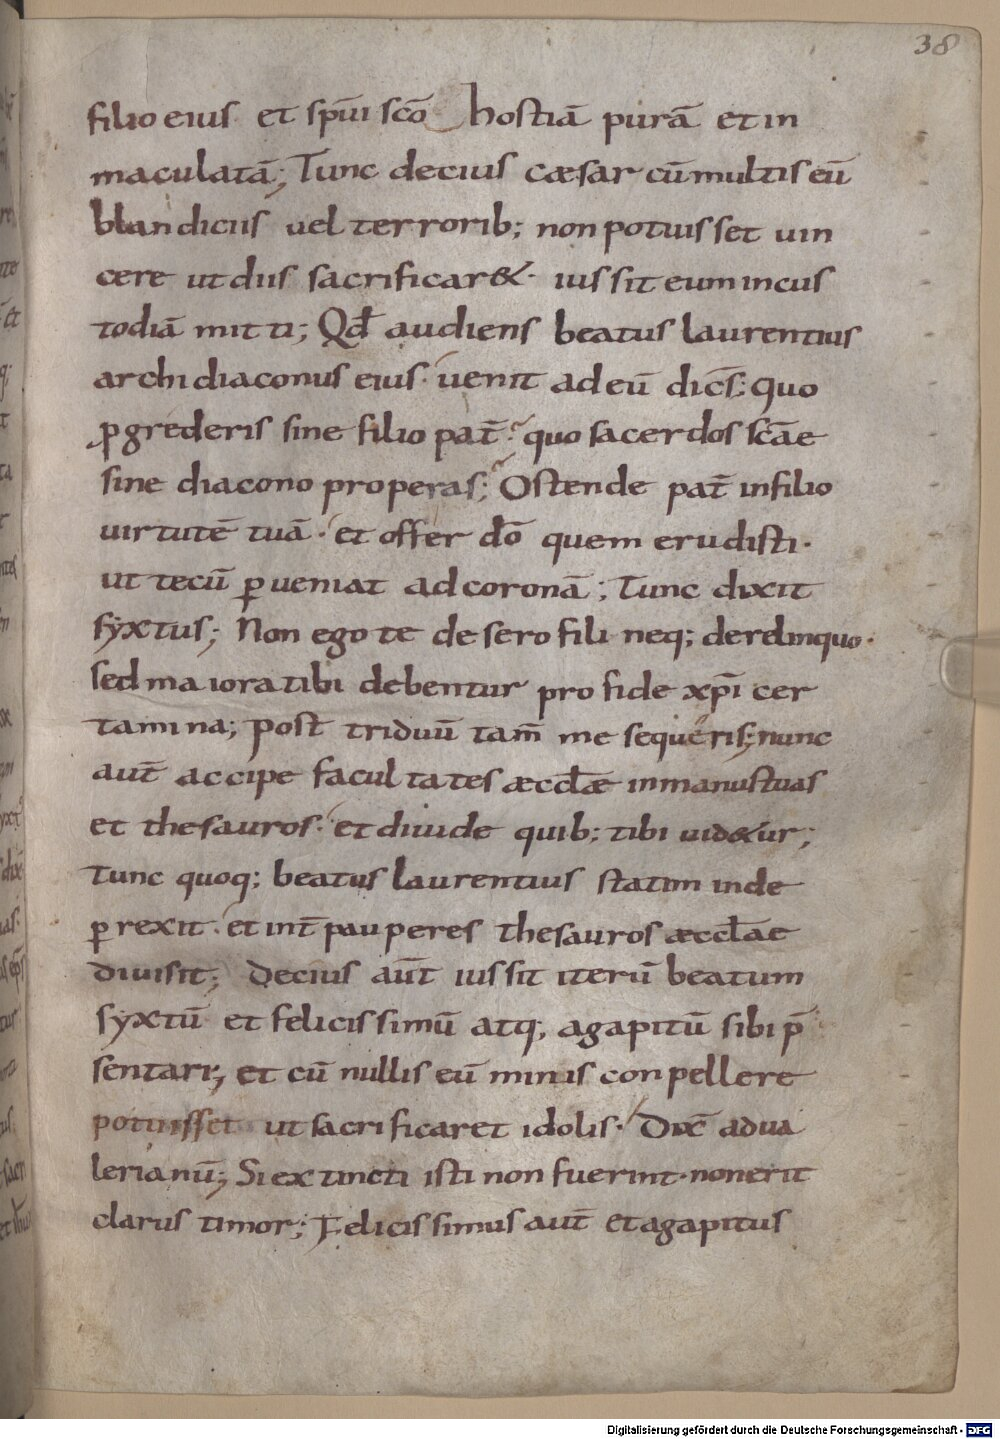 38
filio eius· et sp̄ui sc̄o hostiā purā et in
maculatā; Tunc decius cæsar cū multis eū
blandiciis uel terrorib; non potuisset uin
cere ut diis sacrificar&· iussit eum in cus
todiā mitti; Qd̄ audiens beatus laurentius
archidiaconus eius· uenit ad eū dic̄s; quo
ꝓgrederis sine filio pat̄? quo sacerdos sc̄ae
sine diacono properas; Ostende pat̄ in filio
uirtutē tuā· et offer dō quem erudisti·
ut tecū ꝑueniat ad coronā; Tunc dixit
syxtus; Non ego te desero fili neq; derelinquo·
sed maiora tibi debentur pro fide xp̄i cer
tamina; post triduū tam̄ me sequeris; nunc
aut̄ accipe facultates æccl̄æ in manus tuas
et thesauros· et diuide quib; tibi uid&ur;
Tunc quoq; beatus laurentius statim inde
ꝑrexit· et int̄ pauperes thesauros æccl̄ae
diuisit; Decius aūt iussit iterū beatum
syxtū et felicissimū atq; agapitū sibi p̄
sentari; et cū nullis eū minis conpellere
potuisset ut sacrificaret idolis· Dix̄ ad ua
lerianū; Si extincti isti non fuerint· non erit
clarus timor; Felicissimus aut̄ et agapitus
Digitalisierung gefördert durch die Deutsche Forschungsgemeinschaft - DFG